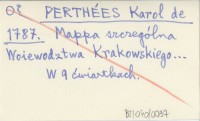 PERTHÉES Karol de
1787. Mappa szczególna
Woiewodztwa Krakowskiego...
W 9 ćwiartkach.